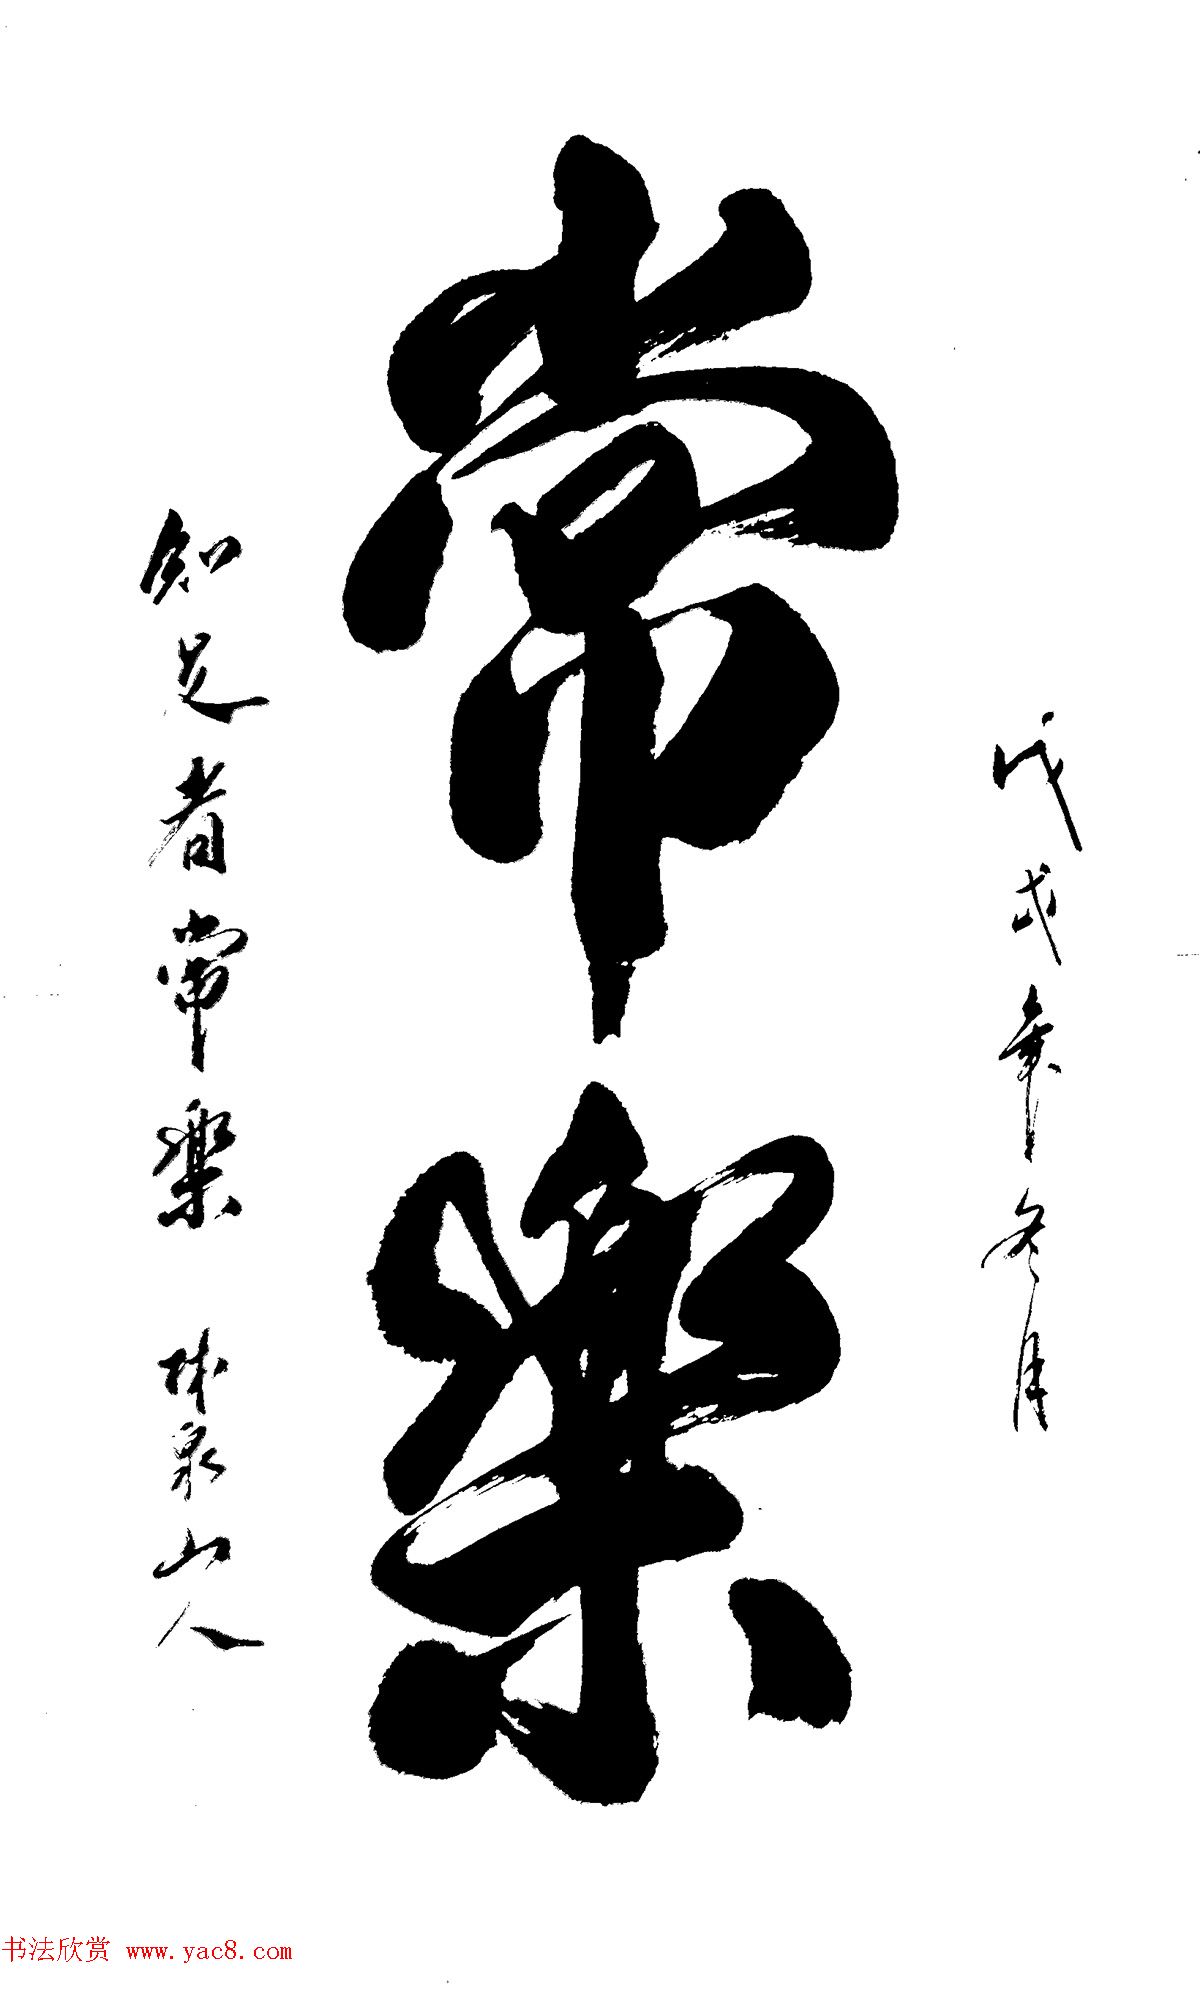 戊戌年冬月
常樂
知足者常樂 泉山人
书法欣赏 www.yac8.com